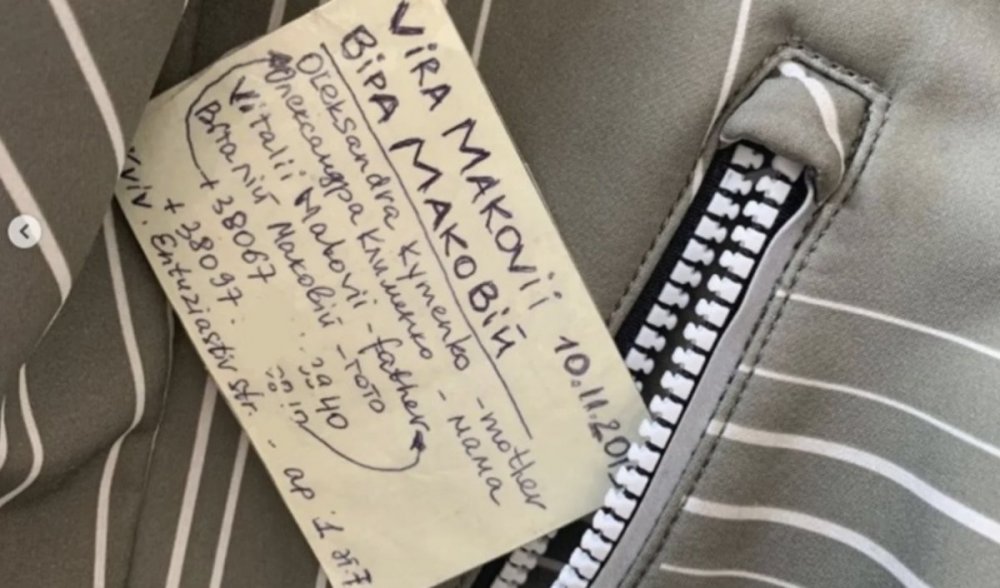 VIRA MAKOVII 10.11.20
ВІРА МАКОВІЙ
Oleksandra Kymenko - mother
Олександра Клименко - мама
Vitalii Makovii - father
Віталій Маковій - тото
+38067 40
+38097
Entuziastiv str. - ap